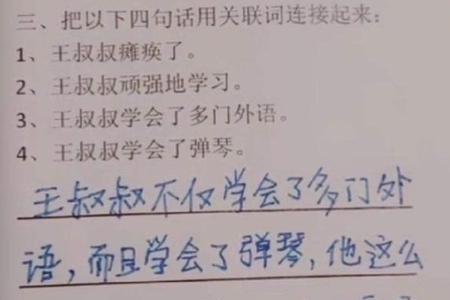 三、把以下四句话用关联词连接起来:
1、王叔叔瘫痪了。
2、王叔叔顽强地学习。
3、王叔叔学会了多门外语。
4、王叔叔学会了弹琴。
王叔叔不仅学会了多门外
语,而且学会了弹琴,他这么